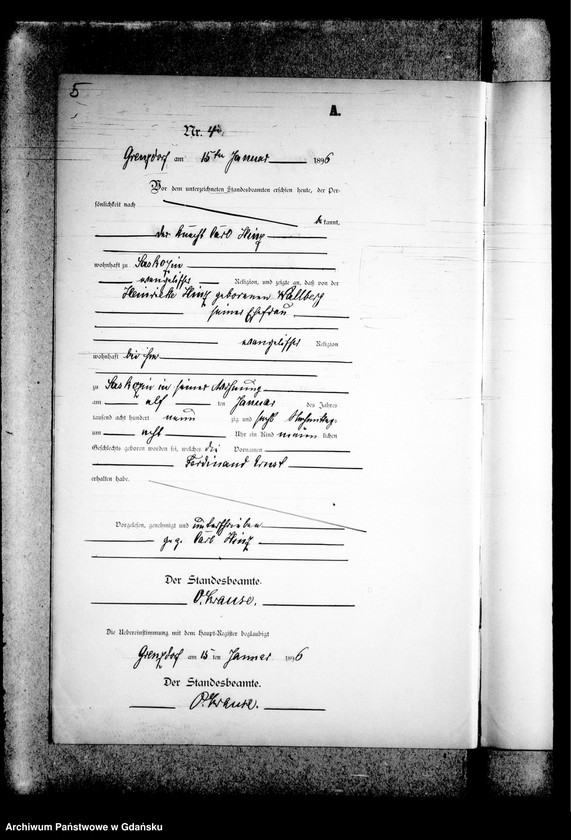 5
A.
Nr. 4.
Grenzdorf am 15ten Januar 1896
Vor dem unterzeichneten Standesbeamten erschien heute, der Per-
sönlichkeit nach
bekannt,
der Knecht Carl
wohnhaft zu Saskozin
evangelischer Religion, und zeigte an, daß von der
Henriette geborenen Wallberg
seiner Ehefrau
evangelischer Religion
wohnhaft bei ihm
zu Saskozin in seiner Wohnung
am elf ten Januar des Jahres
tausend acht hundert neun zig und sechs Vormittags
um acht Uhr ein Kind männ lichen
Geschlechts geboren worden sei, welches die Vornamen
Ferdinand Ernst
erhalten habe.
Vorgelesen, genehmigt und unterschrieben
gez. Carl
Der Standesbeamte.
O. Krause.
Die Uebereinstimmung mit dem Haupt-Register beglaubigt
Grenzdorf am 15 ten Januar 1896
Der Standesbeamte.
O. Krause.
Archiwum Państwowe w Gdańsku